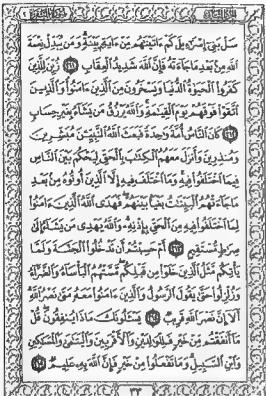 سَلْ بَنِي إِسْرَٰءِيلَ كَمْ ءَاتَيْنَٰهُم مِّنْ ءَايَةٍ بَيِّنَةٍ وَمَن يُبَدِّلْ نِعْمَةَ
ٱللَّهِ مِنۢ بَعْدِ مَا جَآءَتْهُ فَإِنَّ ٱللَّهَ شَدِيدُ ٱلْعِقَابِ ٢١١ زُيِّنَ لِلَّذِينَ
كَفَرُوا۟ ٱلْحَيَوٰةُ ٱلدُّنْيَا وَيَسْخَرُونَ مِنَ ٱلَّذِينَ ءَامَنُوا۟ وَٱلَّذِينَ
ٱتَّقَوْا۟ فَوْقَهُمْ يَوْمَ ٱلْقِيَٰمَةِ وَٱللَّهُ يَرْزُقُ مَن يَشَآءُ بِغَيْرِ حِسَابٍ
٢١٢ كَانَ ٱلنَّاسُ أُمَّةً وَٰحِدَةً فَبَعَثَ ٱللَّهُ ٱلنَّبِيِّـۧنَ مُبَشِّرِينَ
وَمُنذِرِينَ وَأَنزَلَ مَعَهُمُ ٱلْكِتَٰبَ بِٱلْحَقِّ لِيَحْكُمَ بَيْنَ ٱلنَّاسِ
فِيمَا ٱخْتَلَفُوا۟ فِيهِ وَمَا ٱخْتَلَفَ فِيهِ إِلَّا ٱلَّذِينَ أُوتُوهُ مِنۢ بَعْدِ
مَا جَآءَتْهُمُ ٱلْبَيِّنَٰتُ بَغْيًۢا بَيْنَهُمْ فَهَدَى ٱللَّهُ ٱلَّذِينَ ءَامَنُوا۟
لِمَا ٱخْتَلَفُوا۟ فِيهِ مِنَ ٱلْحَقِّ بِإِذْنِهِۦ وَٱللَّهُ يَهْدِى مَن يَشَآءُ إِلَىٰ
صِرَٰطٍ مُّسْتَقِيمٍ ٢١٣ أَمْ حَسِبْتُمْ أَن تَدْخُلُوا۟ ٱلْجَنَّةَ وَلَمَّا
يَأْتِكُم مَّثَلُ ٱلَّذِينَ خَلَوْا۟ مِن قَبْلِكُم مَّسَّتْهُمُ ٱلْبَأْسَآءُ وَٱلضَّرَّآءُ
وَزُلْزِلُوا۟ حَتَّىٰ يَقُولَ ٱلرَّسُولُ وَٱلَّذِينَ ءَامَنُوا۟ مَعَهُۥ مَتَىٰ نَصْرُ ٱللَّهِ
أَلَآ إِنَّ نَصْرَ ٱللَّهِ قَرِيبٌ ٢١٤ يَسْـَٔلُونَكَ مَاذَا يُنفِقُونَ قُلْ
مَآ أَنفَقْتُم مِّنْ خَيْرٍ فَلِلْوَٰلِدَيْنِ وَٱلْأَقْرَبِينَ وَٱلْيَتَٰمَىٰ وَٱلْمَسَٰكِينِ
وَٱبْنِ ٱلسَّبِيلِ وَمَا تَفْعَلُوا۟ مِنْ خَيْرٍ فَإِنَّ ٱللَّهَ بِهِۦ عَلِيمٌ ٢١٥
٣٣